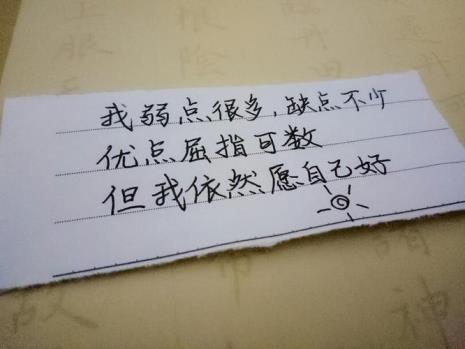 我弱点很多，缺点不少
优点屈指可数
但我依然愿自己好